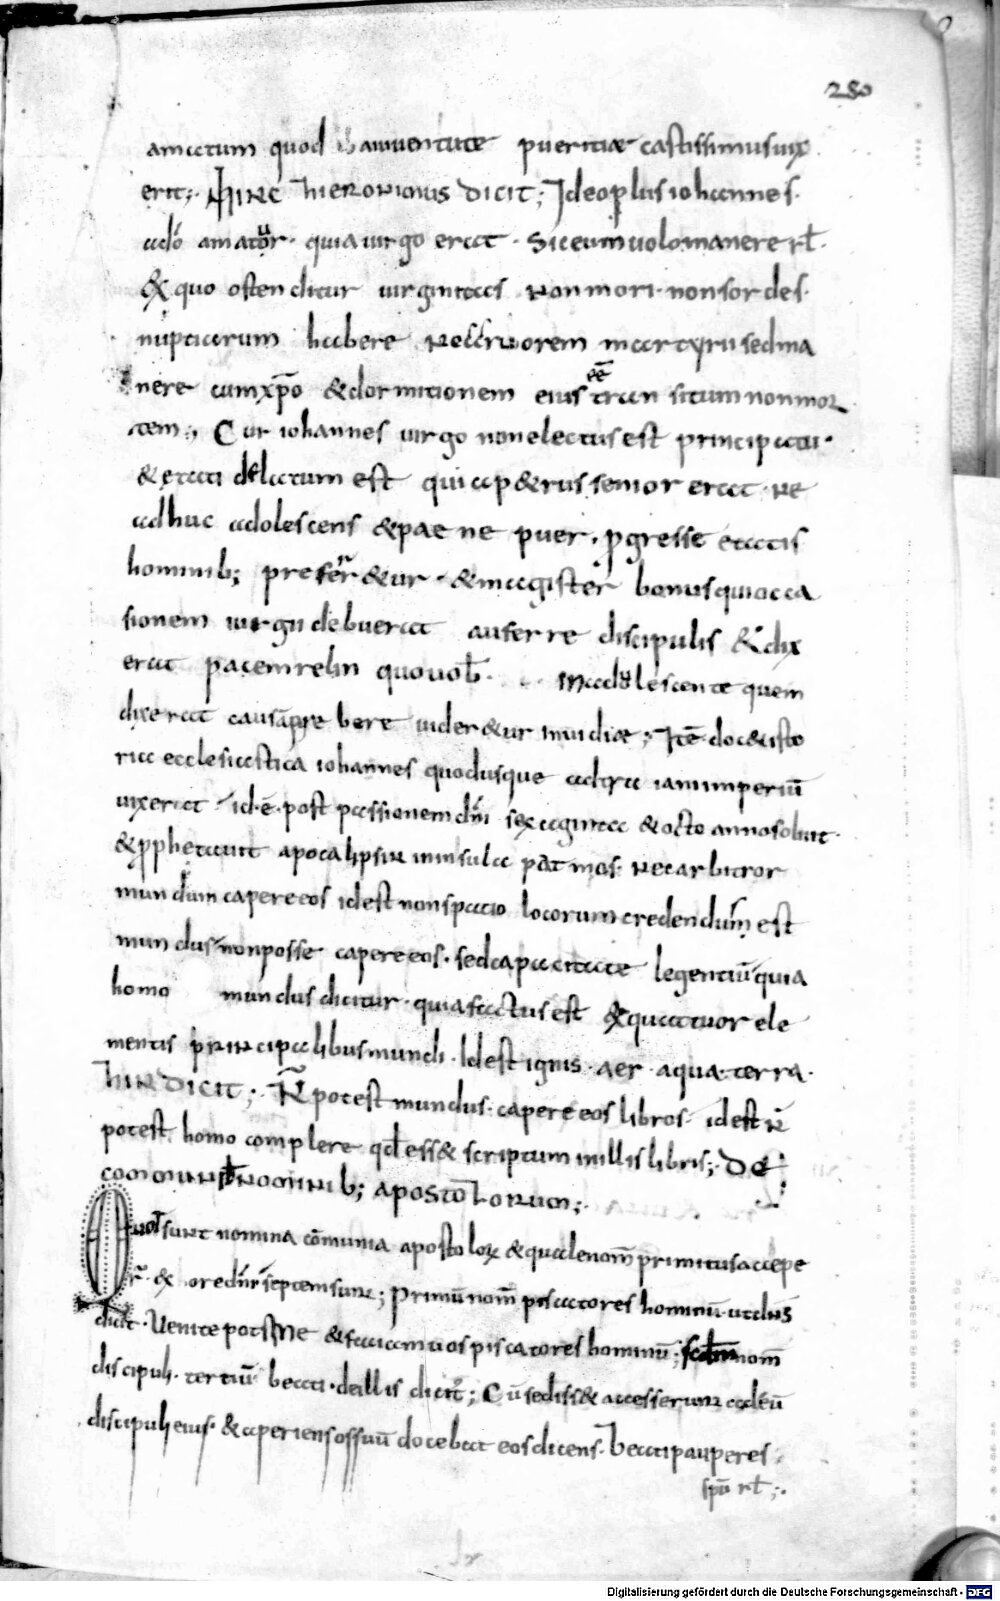 280
amatum quod iuventute pueritiae castissimus vix
erit; Hinc hieronimus dicit; Ideo plus iohannes
a dō amatur. quia virgo erat. Si eum volo manere rł.
& quo ostenditur virginitatis non mori. non sordes.
nuptiarum habere nec cruorem martyrii sed ma
nere cum xp̄o & dormitionem eius rē transitum non mor
tem; Cur iohannes virgo non electus est principatui.
& etati delatum est qui a p&rus senior erat. Ne
adhuc adolescens & paene puer. progresse etatis
hominib; preferr&ur. & magister bonus qui occa
sionem iurgii debuerat auferre discipulis & dix
erat pacem relinquo vob̄. In adolescente quem
dixerat causam prebere vider&ur invidiae; Itē doc& isto
ria ecclesiastica iohannes quod usque ad traiani imperiū
vixerat. id.ē. post passionem dn̄i sexaginta & octo annos obiit.
& prophetavit apocalipsin in insula patmos. Nec arbitror
mundum capere eos id est non spatio locorum credendum est
mundus non posse capere eos. sed capacitate legentiū quia
homo mundus dicitur. quia factus est & quattuor ele
mentis principalibus mundi. Id est ignis. aer. aqua. terra.
hin dicit; N̄ potest mundus capere eos libros. id est n̄
potest homo complere qd̄ ess& scriptum in illis libris; DE
COMMUNIB; NOMINIB; APOSTOLORUM;
Quot sunt nomina cōmunia apostolorꝝ & quale nom̄ primitus accepe
r̄. & ordin̄r septem sunt; Primū nom̄ piscatores hominū. ut dn̄s
dicit. Venite post me & faciam vos piscatores hominū; scdm̄ nom̄
discipuli. tertiū beati. de illis dicit; Cū sediss& accesserunt ad eū
discipuli eius. & aperiens os suū docebat eos dicens. Beati pauperes
spū rł;.
Digitalisierung gefördert durch die Deutsche Forschungsgemeinschaft - DFG